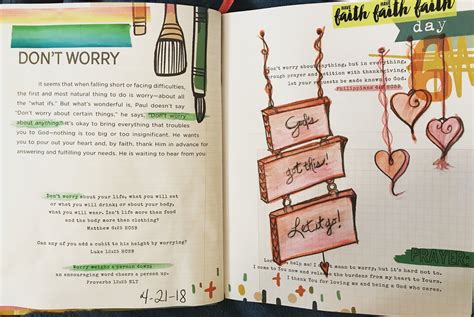 DON'T WORRY
It seems that when falling short or facing difficulties,
the first and most natural thing to do is worry—about all
the "what ifs." But what's wonderful is, Paul doesn't say
"Don't worry about certain things," he says, "Don't worry
about anything." It's okay to bring everything that troubles
you to God—nothing is too big or too insignificant. He wants
us to pour out your heart and, by faith, thank Him in advance for
answering and fulfilling your needs. He is waiting to hear from you.
Don't worry about your life, what you will eat
or what you will drink; or about your body,
what you will wear. Isn't life more than food
and the body more than clothing?
Matthew 6:25 HCSB
Can any of you add a cubit to his height by worrying?
Luke 12:25 HCSB
Worry weighs a person down;
an encouraging word cheers a person up.
Proverbs 12:25 NLT
4-21-18
HAVE HAVE HAVE
faith faith faith
day
Don't worry about anything, but in everything,
through prayer and petition with thanksgiving,
let your requests be made known to God.
Philippians 4:6 HCSB
God's
got this!
Let it go!
PRAYER:
Lord, help me! I don't mean to worry, but it's hard not to.
I come to You now and release the burdens from my heart to Yours.
Thank You for loving me and being a God who cares.